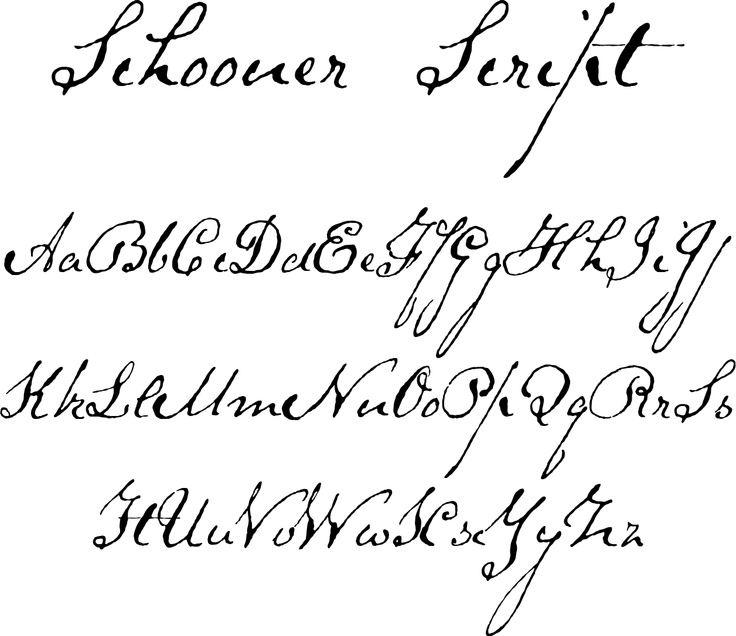 Schooner Script
AaBbCcDdEeFfGgHhIiJj
KkLlMmNnOoPpQqRrSs
TtUuVvWwXxYyZz